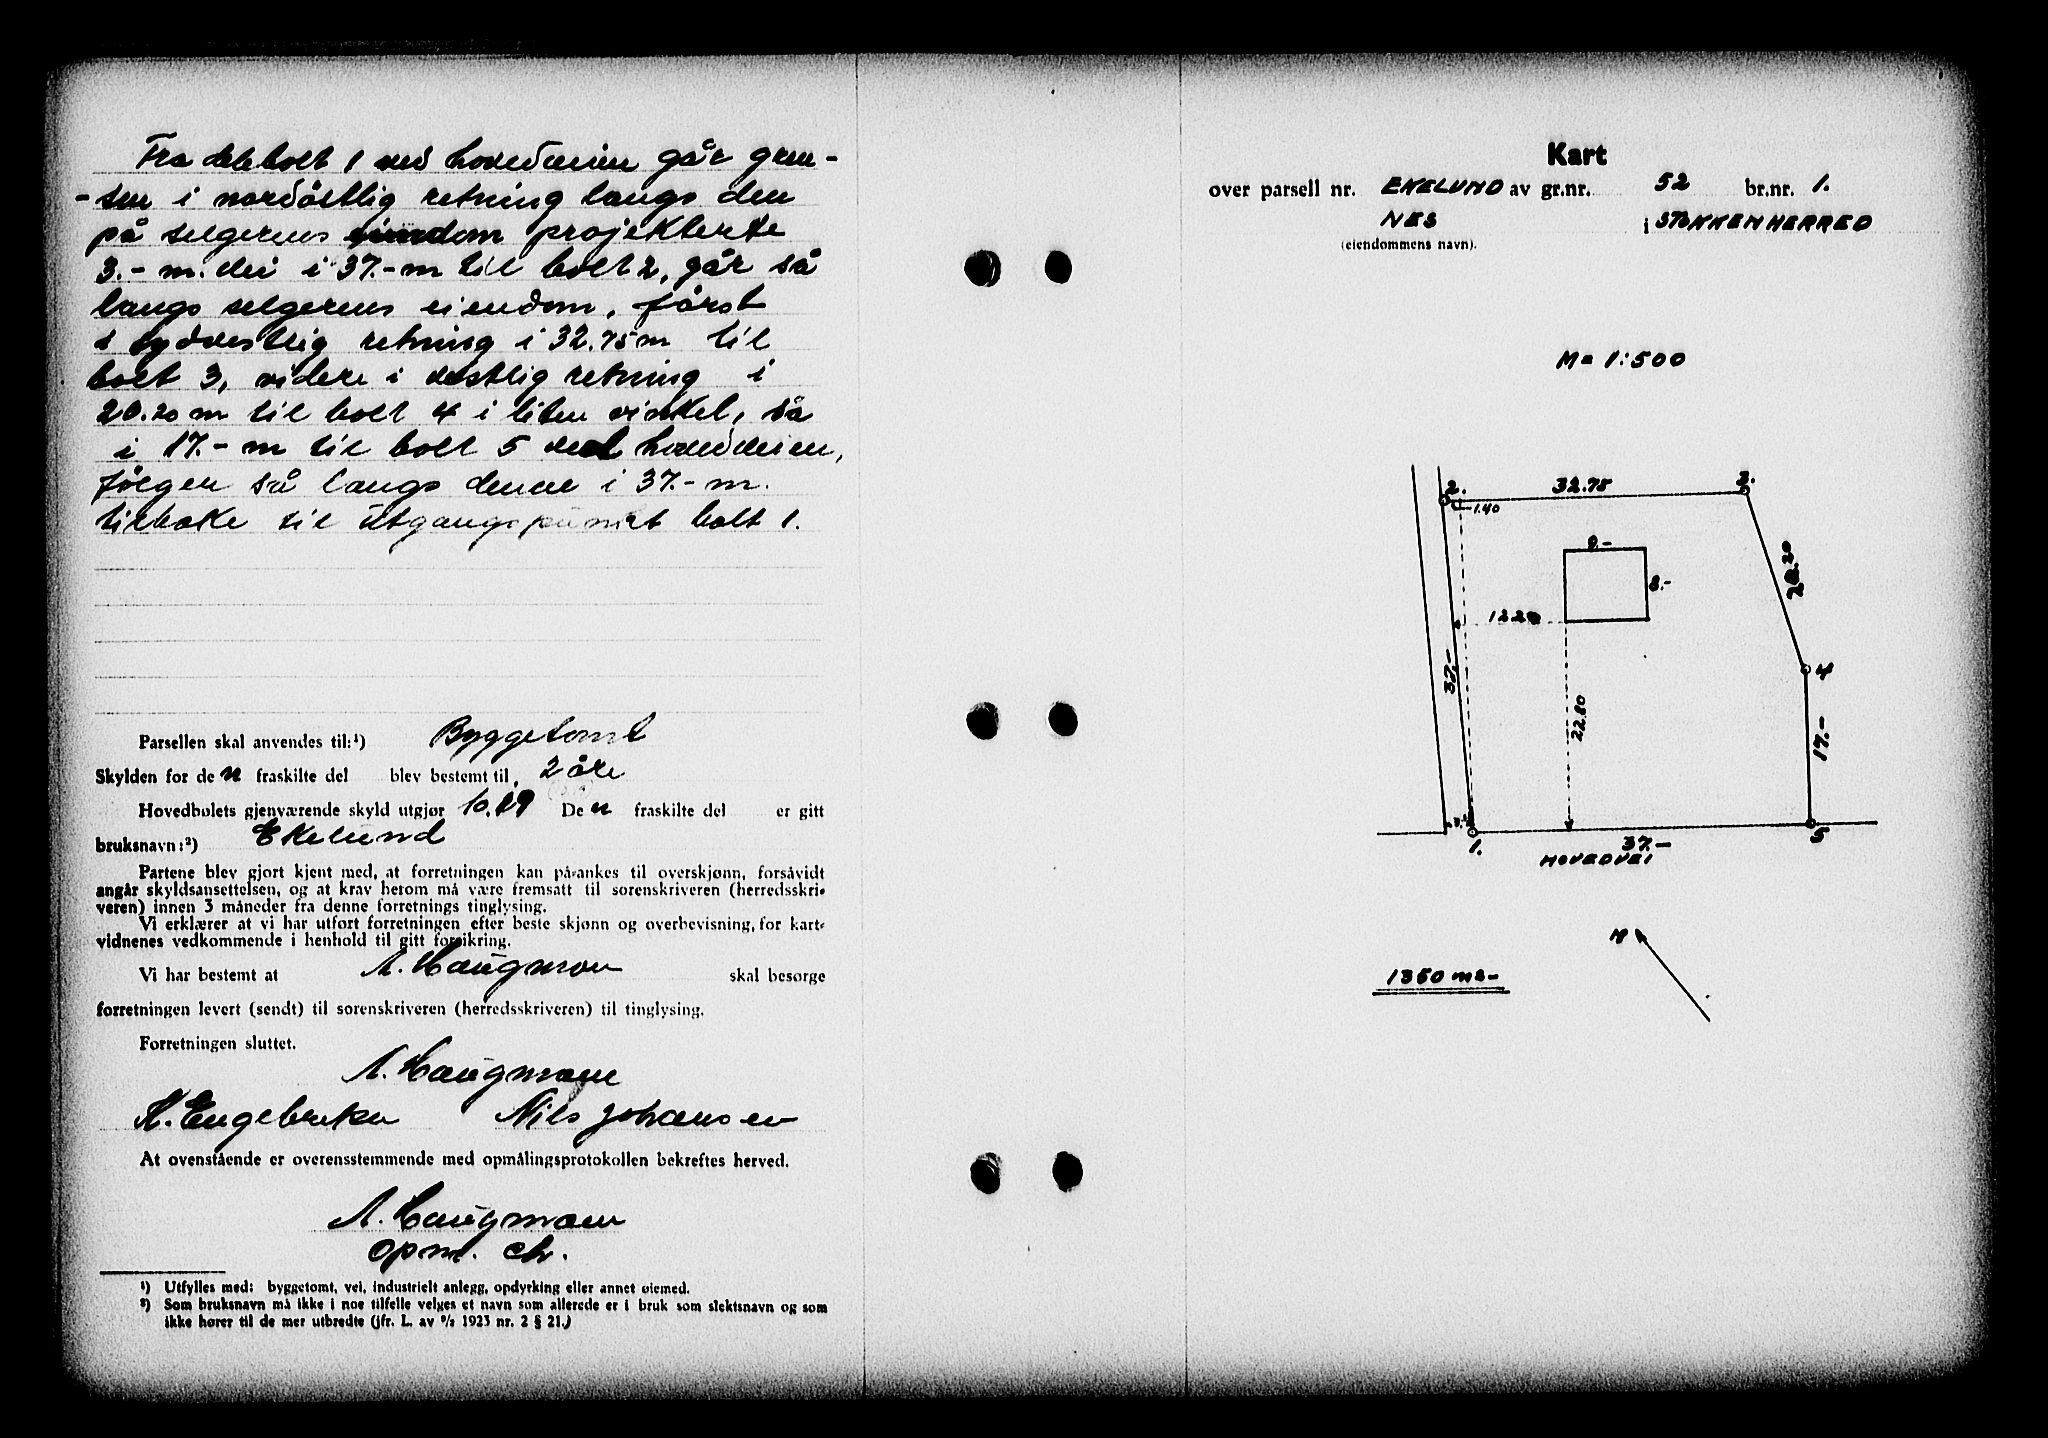 Fra delebolt 1 ved hovedveien går gren-
-sen i nordöstlig retning langs den
på selgerens eiendom projekterte
3.- m. vei i 37.-m til bolt 2, går så
langs selgerens eiendom, först
i sydvestlig retning i 32.75 m til
bolt 3, videre i vestlig retning i
20.20 m til bolt 4 i liten vinkel, så
i 17.- m til bolt 5 ved hovedveien,
fölger så langs denne i 37.- m.
tilbake til utgangspunkt bolt 1.
Parsellen skal anvendes til:¹) Byggetomt
Skylden for de n fraskilte del blev bestemt til 2 öre
Hovedbølets gjenværende skyld utgjør 10.89 De n fraskilte del er gitt
bruksnavn:²) Ekelund
Partene blev gjort kjent med, at forretningen kan på-ankes til overskjønn, forsåvidt
angår skyldsansettelsen, og at krav herom må være fremsatt til sorenskriveren (herredsskri-
veren) innen 3 måneder fra denne forretnings tinglysing.
Vi erklærer at vi har utført forretningen efter beste skjønn og overbevisning, for kart-
vidnenes vedkommende i henhold til gitt forsikring.
Vi har bestemt at A. Haugmoen skal besørge
forretningen levert (sendt) til sorenskriveren (herredsskriveren) til tinglysing.
Forretningen sluttet.
A. Haugmoen
Nils Johansen
At ovenstående er overensstemmende med opmålingsprotokollen bekreftes herved.
A. Haugmoen
opm. ch.
¹) Utfylles med: byggetomt, vei, industrielt anlegg, opdyrking eller annet øiemed.
²) Som bruksnavn må ikke i noe tilfelle velges et navn som allerede er i bruk som slektsnavn og som
ikke hører til de mer utbredte (jfr. L. av ⁹/₂ 1923 nr. 2 § 21.)
Kart
over parsell nr. EKELUND av gr.nr. 52 br.nr. 1.
NES i STOKKEN HERRED
(eiendommens navn).
M= 1:500
2. 32.75 3.
1.40
9.-
8.-
20.20
12.20
4
37.-
22.80
17.-
1. 37.- 5
HOVEDVEI
N
1350 m2-